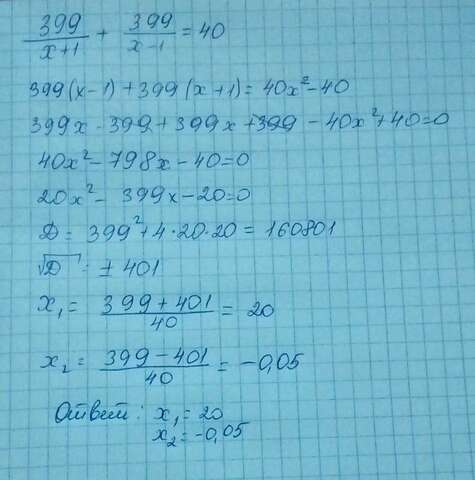 399/(x+1) + 399/(x-1) = 40
399(x-1)+399(x+1)=40x²-40
399x-399+399x+399-40x²+40=0
40x²-798x-40=0
20x²-399x-20=0
D=399²+4·20·20=160801
√D : ±401
x₁= (399+401)/40 = 20
x₂= (399-401)/40 = -0,05
Ответ: x₁=20
x₂=-0,05